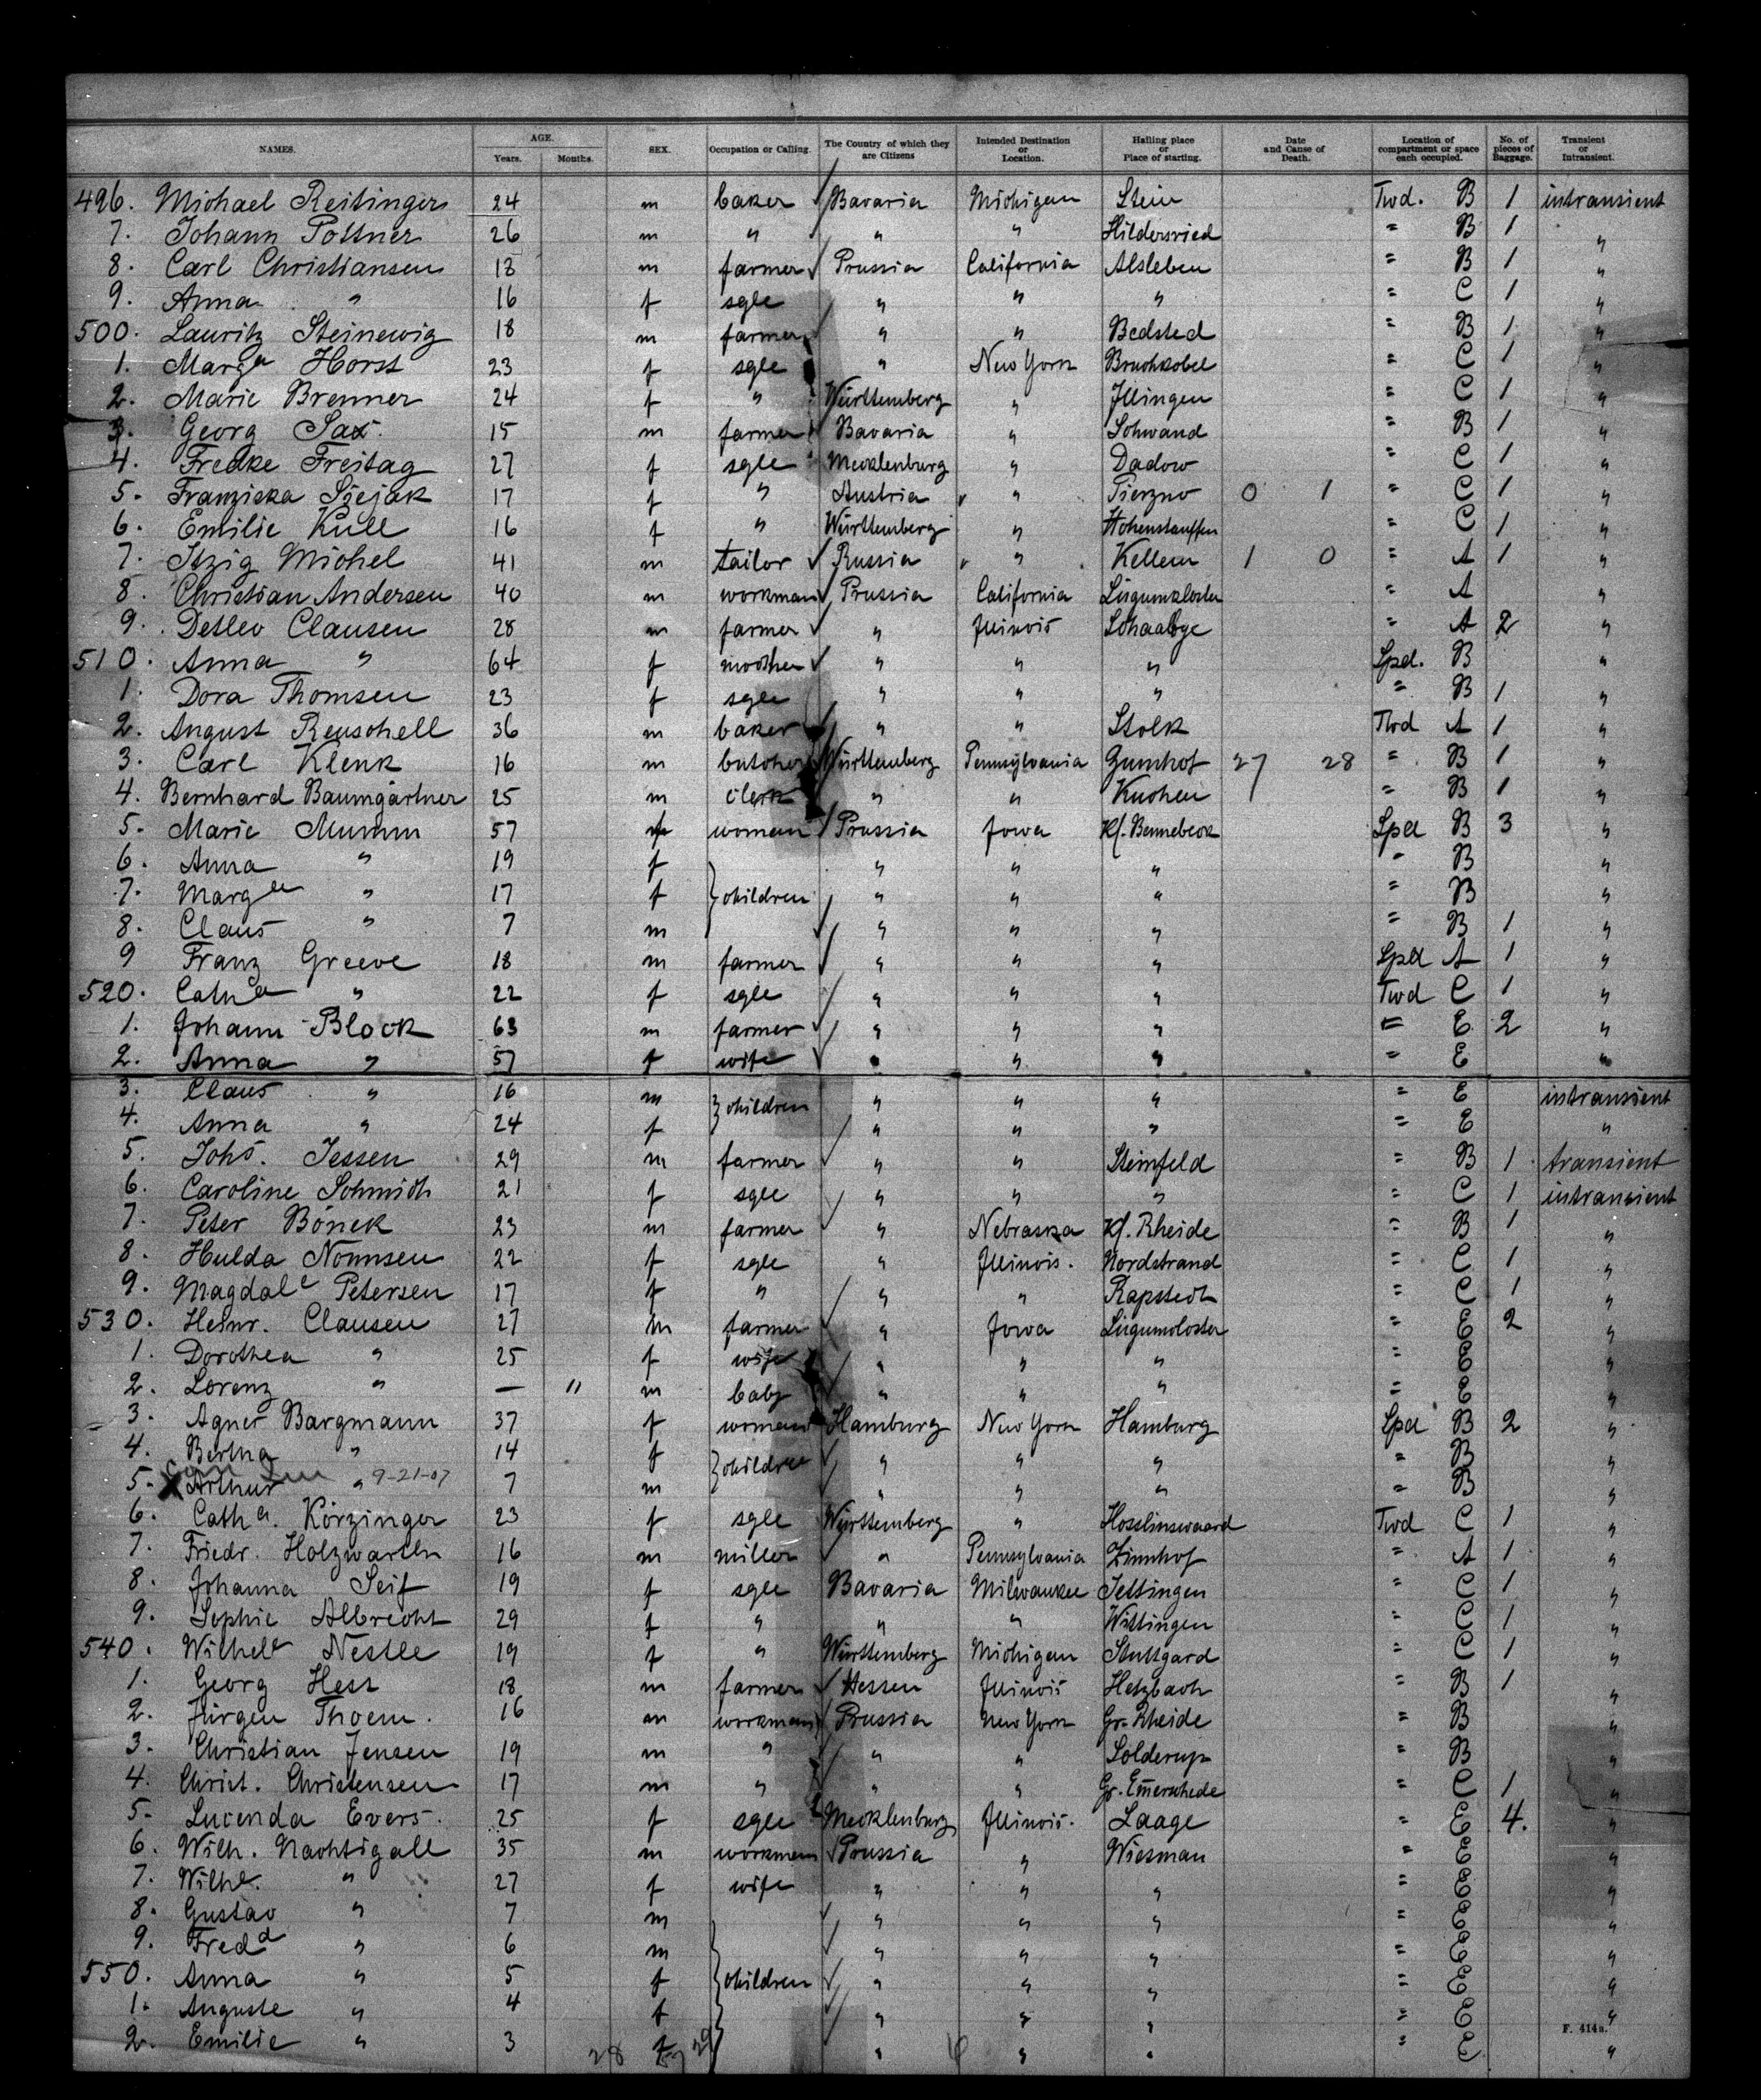 NAMES. AGE. Years. Months. SEX. Occupation or Calling. The Country of which they are Citizens Intended Destination or Location. Hailing place or Place of starting. Date and Cause of Death. Location of compartment or space each occupied. No. of pieces of Baggage. Transient or Intransient.
496. Michael Reitinger 24 m baker Bavaria Michigan Stein Twd. B 1 intransient
7. Johann Pöttner 26 m " " " Hildersried = B 1 "
8. Carl Christiansen 18 m farmer Prussia California Alsleben = B 1 "
9. Anna " 16 f sgle " " " = C 1 "
500. Lauritz Steinewig 18 m farmer " " Bedsted = B 1 "
1. Marg a Horst 23 f sgle " New York Bruchköbel = C 1 "
2. Marie Brenner 24 f " Württemberg " Illingen = C 1 "
3. Georg Sax 15 m farmer Bavaria " Schwand = B 1 "
4. Fredke Freitag 27 f sgle Mecklenburg " Dadow = C 1 "
5. Franziska 17 f " Austria " Pierzno 0 1 = C 1 "
6. Emilie Kull 16 f " Württemberg " Hohenstauffen = C 1 "
7. Itzig Michel 41 m tailor Russia " Kellem 1 0 = A 1 "
8. Christian Andersen 40 m workman Prussia California Lügumkloster = A "
9. Detlev Clausen 28 m farmer " Illinois Schaalbye = A 2 "
510. Anna " 64 f mother " " " Spd. B "
1. Dora Thomsen 23 f sgle " " " = B 1 "
2. August Reuschell 36 m baker " " Stolk Twd A 1 "
3. Carl Klenk 16 m butcher Württemberg Pennsylvania 27 28 = B 1 "
4. Bernhard Baumgartner 25 m clerk " " Kuchen = B 1 "
5. Marie Mumm 57 f woman Prussia Iowa Kl. Bennebeck Spd B 3 "
6. Anna " 19 f " " " " B "
7. Marg a " 17 f children " " " = B "
8. Claus " 7 m " " " = B 1 "
9 Franz Greeve 18 m farmer " " " Spd A 1 "
520. Cath a " 22 f sgle " " " Twd C 1 "
1. Johann Block 63 m farmer " " " = E 2 "
2. Anna " 57 f wife " " " = E "
3. Claus " 16 m children " " " = E intransient
4. Anna " 24 f " " " = E "
5. Johs. Jessen 29 m farmer " " Steinfeld = B 1 transient
6. Caroline Schmidt 21 f sgle " " " = C 1 intransient
7. Peter Bönek 23 m farmer " Nebraska Kl. Rheide = B 1 "
8. Hulda Nommsen 22 f sgle " Illinois. Nordstrand = C 1 "
9. Magdal e Petersen 17 f " " " Rapstedt = C 1 "
530. Heinr. Clausen 27 m farmer " Iowa Lügumcloster = E 2 "
1. Dorothea " 25 f wife " " " = E "
2. Lorenz " — 11 m baby " " " = E "
3. Agnes Bargmann 37 f woman Hamburg New York Hamburg Spd B 2 "
4. Bertha " 14 f children " " " = B "
5. X Arthur " 9-21-07 7 m " " " = B "
6. Cath a. Körzinger 23 f sgle Württemberg " Twd C 1 "
7. Friedr. Holzwarth 16 m miller " Pennsylvania Zinnhof = A 1 "
8. Johanna Seif 19 f sgle Bavaria Milwaukee Jettingen = C 1 "
9. Sophie Albrecht 29 f " " " Wittingen = C 1 "
540. Wilhel e Nestle 19 f " Württemberg Michigan Stuttgard = C 1 "
1. Georg Hess 18 m farmer Hessen Illinois Hetzbach = B 1 "
2. Jürgen Thoem. 16 m workman Prussia New York Gr. Rheide = B "
3. Christian Jensen 19 m " " " Solderup = B "
4. Christ. Christensen 17 m " " " Gr. Emerschede = C 1 "
5. Lucenda Evers. 25 f sgle Mecklenburg Illinois. Laage = E 4. "
6. Wilh. Nachtigall 35 m workman Prussia " Wiesman = E "
7. Wilh e. " 27 f wife " " " = E "
8. Gustav " 7 m " " " = E "
9. Fred d " 6 m " " " = E "
550. Anna " 5 f children " " " = E "
1. Auguste " 4 f " " " = E "
2. Emilie " 3 f " " " = E "
28 29
F. 414a.